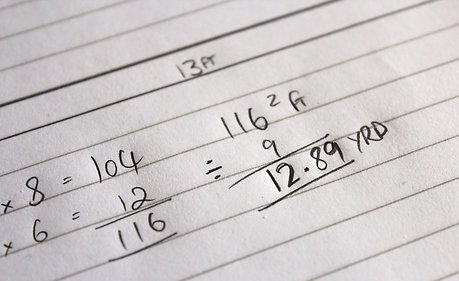 13 FT
× 8 = 104
× 6 = 12
116
116² ft
÷ 9
12.89 YRD